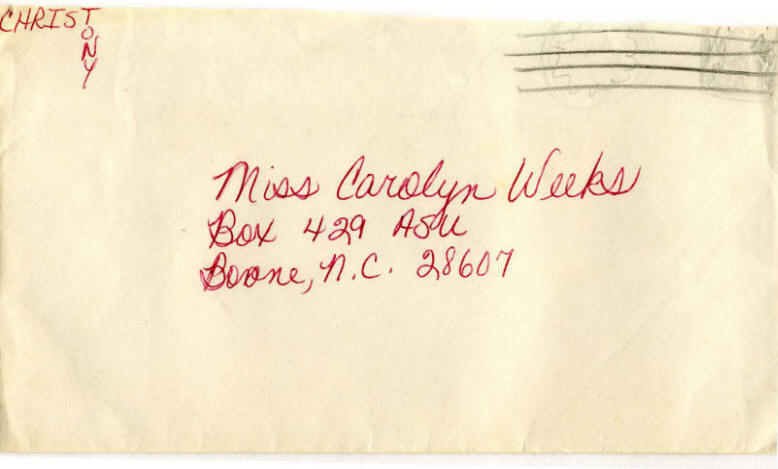 CHRIST
TONY
Miss Carolyn Weeks
Box 429 ASU
Boone, N.C. 28607